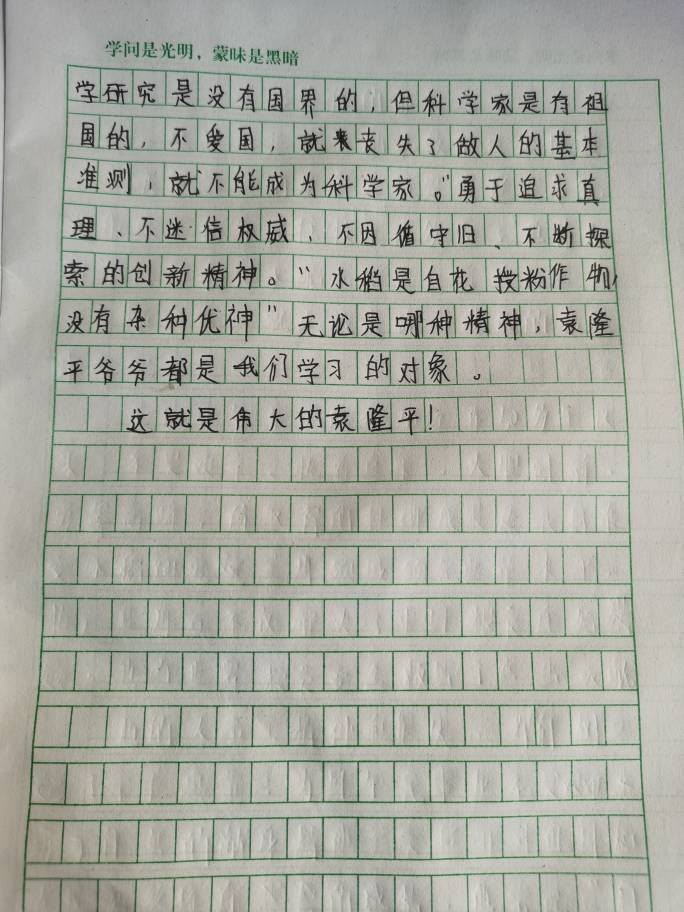 学问是光明，蒙昧是黑暗
学研究是没有国界的，但科学家是有祖
国的，不爱国，就丧失了做人的基本
准测，就不能成为科学家。"勇于追求真
理、不迷信权威、不因循守旧、不断探
索的创新精神。"水稻是自花授粉作物
没有杂种优神"无论是哪种精神，袁隆
平爷爷都是我们学习的对象。
这就是伟大的袁隆平！